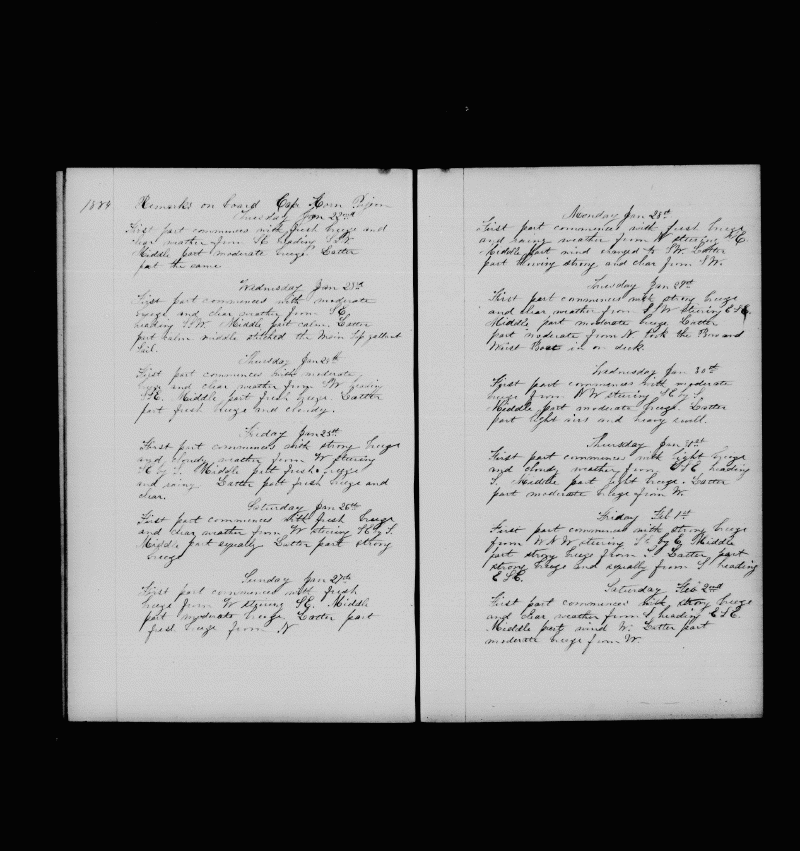 1884 Remarks on board Cap Horn Pigeon
Tuesday Jan 22nd
First part commences with fresh breeze and
clear weather from SE heading SSW
Middle part moderate breeze Latter
part the same
Wednesday Jan 23rd
First part commences with moderate
breeze and clear weather from SE
heading SSW. Middle part calm. Latter
part calm middle the Main Top gallant
Sail.
Thursday Jan 24th
First part commences with moderate
breeze and clear weather from SW heading
SSE. Middle part fresh breeze. Latter
part fresh breeze and cloudy.
Friday Jan 25th
First part commences with strong breeze
and cloudy weather from W steering
SE by S. Middle part fresh breeze
and rainy. Latter part fresh breeze and
clear.
Saturday Jan 26th
First part commences with fresh breeze
and clear weather from W steering SE by S.
Middle part squally Latter part strong
breeze
Sunday Jan 27th
First part commences with fresh
breeze from W steering SE. Middle
part moderate breeze Latter part
fresh breeze from N
Monday Jan 28th
First part commences with fresh breeze
and rainy weather from N steering SE.
Middle part wind changed to SW. Latter
part blowing strong and clear from SW.
Tuesday Jan 29th
First part commences with strong breeze
and clear weather from SSW steering ESE
Middle part moderate breeze Latter
part moderate from N took the Bow and
Waist Boat in on deck.
Wednesday Jan 30th
First part commences with moderate
breeze from NW steering SE by S.
Middle part moderate breeze. Latter
part light airs and heavy swell.
Thursday Jan 31st
First part commences with light breeze
and cloudy weather from ESE heading
S. Middle part light breeze. Latter
part moderate breeze from W.
Friday Feb 1st
First part commences with strong breeze
from WNW steering SE by E Middle
part strong breeze from S Latter part
strong breeze and squally from S heading
ESE.
Saturday Feb 2nd
First part commences with strong breeze
and clear weather from S heading ESE.
Middle part wind W. Latter part
moderate breeze from W.